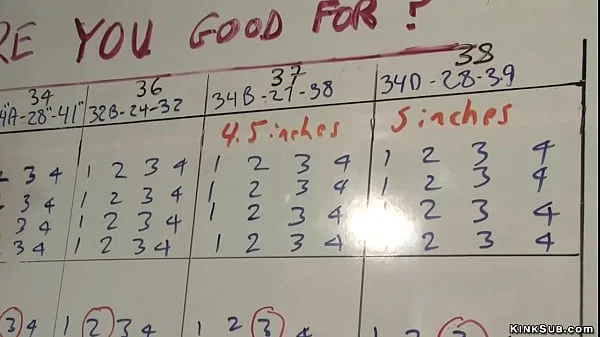 RE YOU GOOD FOR?
34 36 37 38
"A-28"-41" 32B-24-32 34B-27-38 34D-28-39
4.5 inches 5 inches
3 4 1 2 3 4 1 2 3 4 1 2 3 4
3 4 1 2 3 4 1 2 3 4 1 2 3 4
3 4 1 2 3 4 1 2 3 4 1 2 3 4
3 4 1 2 3 4 1 2 3 4 1 2 3 4
3 4 1 2 3 4 1 2 3 4
KINKSUB.COM